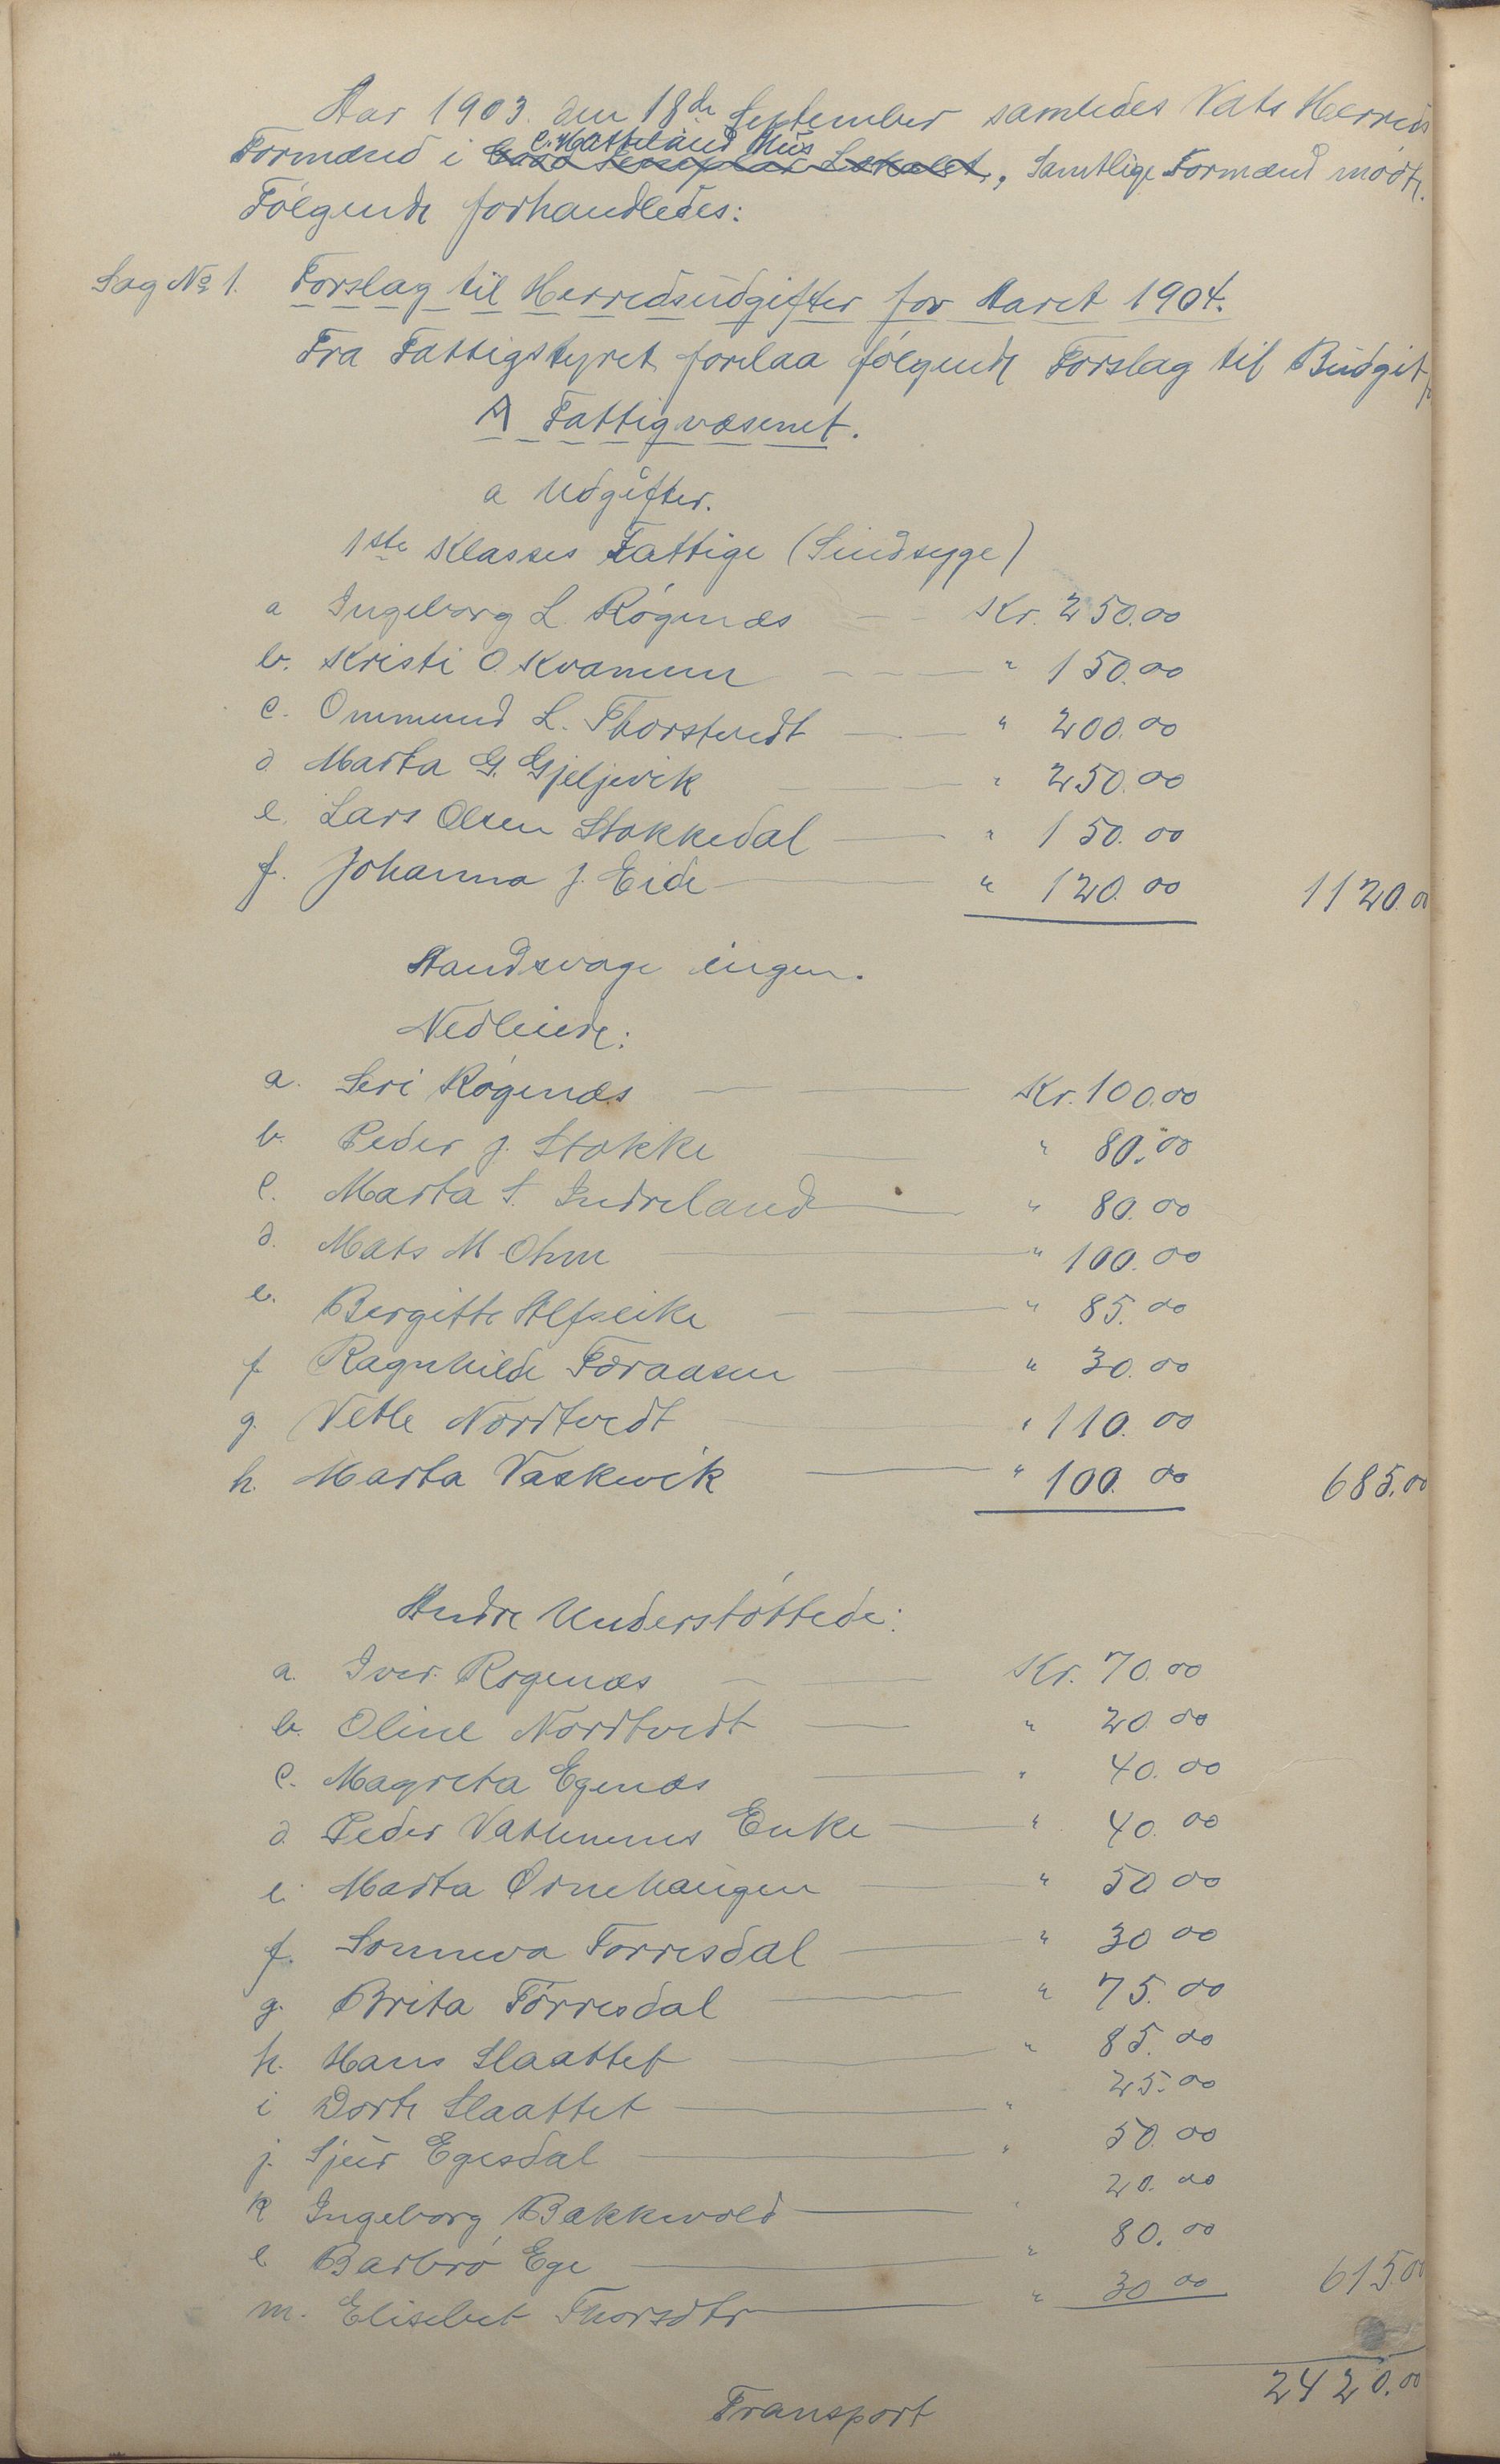 Aar 1903. den 18de September samledes Vats Herreds
Formænd i C. Hatteland Hus, Samtlige Formænd mødte.
Følgende forhandledes:
Sag No 1. Forslag til Herredsudgifter for Aaret 1904.
Fra Fattigstyret forelaa følgende Forslag til Budget
A Fattigvæsenet.
a Udgifter.
1ste Klasses Fattige (Sindsyge)
a Ingeborg L. Røgenæs Kr. 250.00
b. Kristi O. Kvammen " 150.00
c. Ommund L. Thorstvedt " 200.00
d. Marta G. Gjeljevik " 250.00
e. Lars Olsen Stokkedal " 150.00
f. Johanna J. Eide " 120.00 1120.00
Aandsvage ingen.
Nedleiere:
a. Seri Røgenæs Kr. 100.00
b. Peder J. Stokke " 80.00
c. Marta S. Indreland " 80.00
d. Mats M Ohm " 100.00
e. Bergitte Alfseike " 85.00
f Ragnhilde Føraasen " 30.00
g. Vetle Nordtvedt " 110.00
h. Marta Vaskevik " 100.00 685.00
Andre Understøttede:
a. Iver Rogenæs Kr. 70.00
b. Oline Nordtvedt " 20.00
c. Magreta Egenæs " 40.00
d. Peder Enke " 40.00
e. Marta Ørnehaugen " 50 00
f. Sonneva Torresdal " 30 00
g. Brita Tørresdal " 75.00
h. Hans Slaattet " 85.00
i Dorte Slaattet " 25.00
j. Sjur Egesdal " 50.00
k Ingeborg Bakkevold " 20.00
l Barbro Ege " 80.00
m. Elisebet Thorsdtr " 30 00 615.00
2420.00
Transport